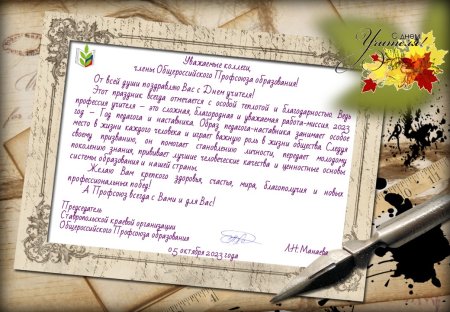 С Днем
Учителя!
Уважаемые коллеги,
члены Общероссийского Профсоюза образования!
От всей души поздравляю Вас с Днем учителя!
Этот праздник всегда отмечается с особой теплотой и благодарностью. Ведь
профессия учителя – это сложная, благородная и уважаемая работа-миссия. 2023
год – Год педагога и наставника. Образ педагога-наставника занимает особое
место в жизни каждого человека и играет важную роль в жизни общества. Следуя
своему призванию, он помогает становлению личности, передает молодому
поколению знания, прививает лучшие человеческие качества и ценностные основы
системы образования и нашей страны.
Желаю Вам крепкого здоровья, счастья, мира, благополучия и новых
профессиональных побед!
А Профсоюз всегда с Вами и для Вас!
Председатель
Ставропольской краевой организации
Общероссийского Профсоюза образования
Л.Н. Манаева
05 октября 2023 года